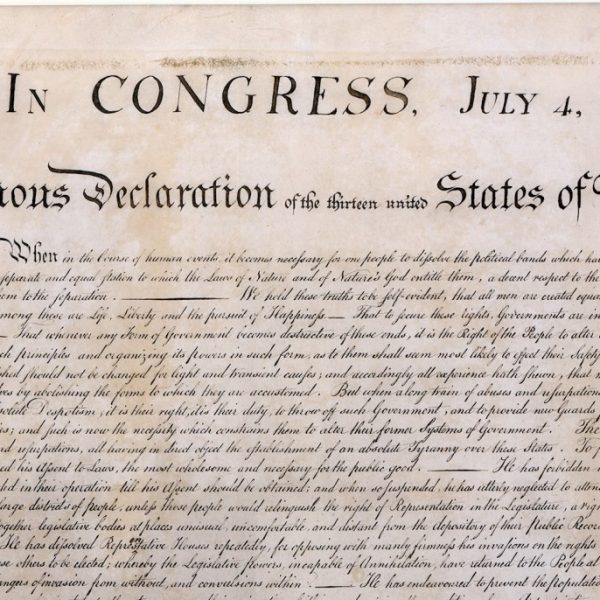 In CONGRESS, July 4,
Declaration of the thirteen united States of
When in the Course of human events, it becomes necessary for one people to dissolve the political bands which
separate and equal station to which the Laws of Nature and of Nature's God entitle them, a decent respect to the
to the separation. We hold these truths to be self-evident, that all men are created
among these are Life, Liberty and the pursuit of Happiness.— That to secure these rights, Governments are
— That whenever any Form of Government becomes destructive of these ends, it is the Right of the People to alter
principles and organizing its powers in such form, as to them shall seem most likely to effect their Safety
should not be changed for light and transient causes; and accordingly all experience hath shewn, that
by abolishing the forms to which they are accustomed. But when a long train of abuses and usurpations
Despotism, it is their right, it is their duty, to throw off such Government, and to provide new Guards
and such is now the necessity which constrains them to alter their former Systems of Government.
and usurpations, all having in direct object the establishment of an absolute Tyranny over these States. To
his Assent to Laws, the most wholesome and necessary for the public good. He has forbidden
in their operation till his Assent should be obtained; and when so suspended, he has utterly neglected to
large districts of people, unless those people would relinquish the right of Representation in the Legislature, a
together legislative bodies at places unusual, uncomfortable, and distant from the depository of their Public
He has dissolved Representative Houses repeatedly, for opposing with manly firmness his invasions on the rights
others to be elected; whereby the Legislative powers, incapable of Annihilation, have returned to the People at
of invasion from without, and convulsions within. He has endeavoured to prevent the